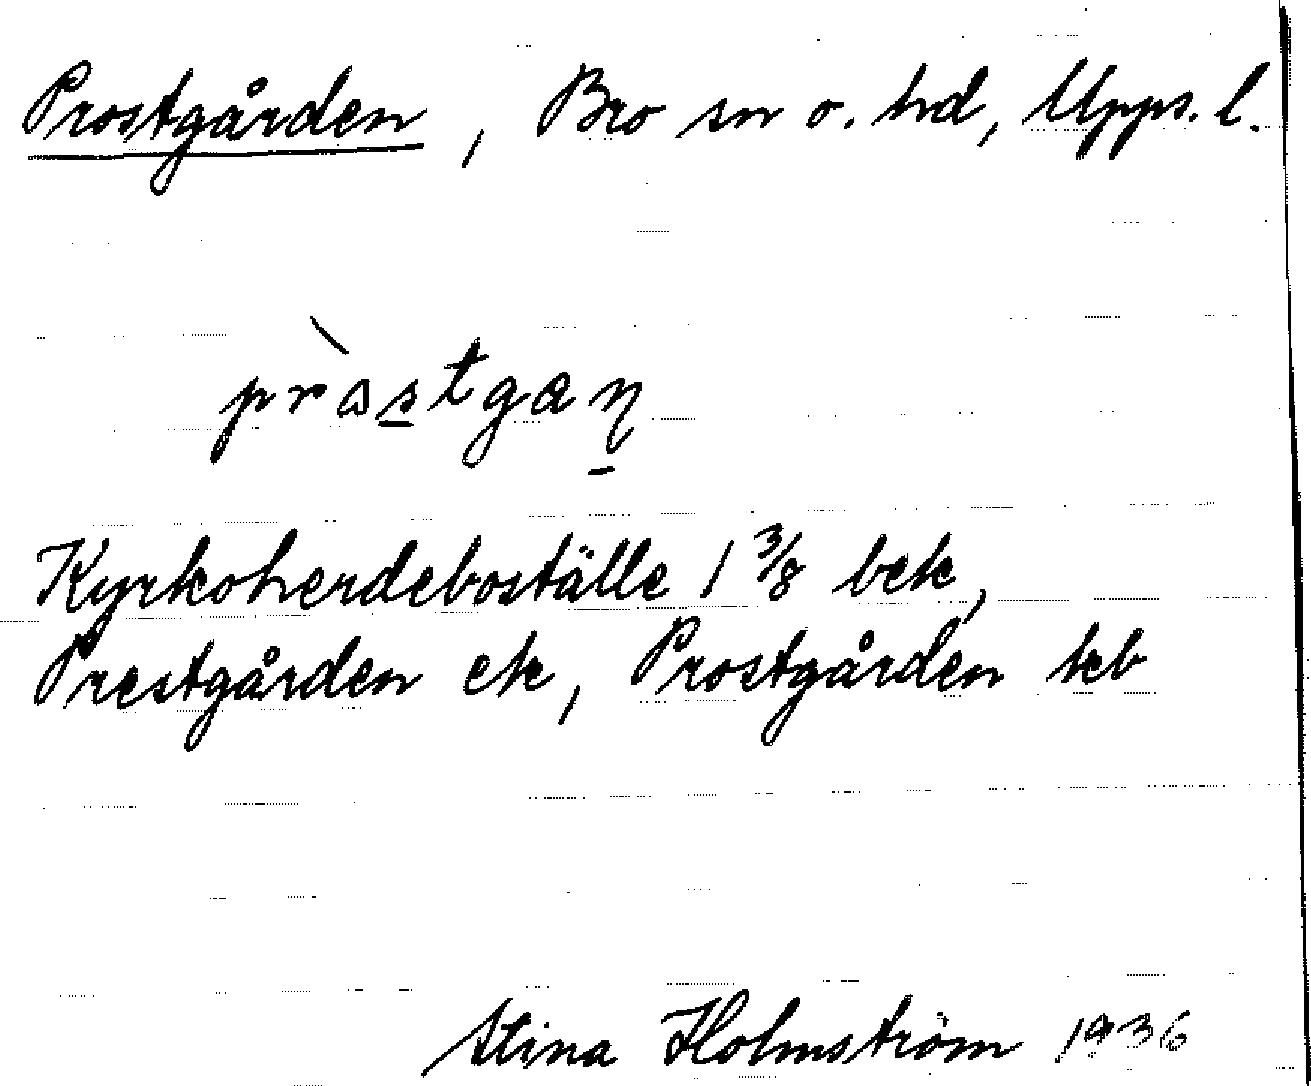 Prostgården, Bro sn o. hd, Upps. l.
pràstgaṇ
Kyrkoherdeboställe 1 3/8 bek,
Prestgården ek, Prostgården kb
Stina Holmström 1936